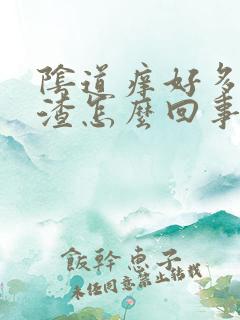 陰道痒好多
渣怎麼回事
飯幹惠子
未经同意禁止转载